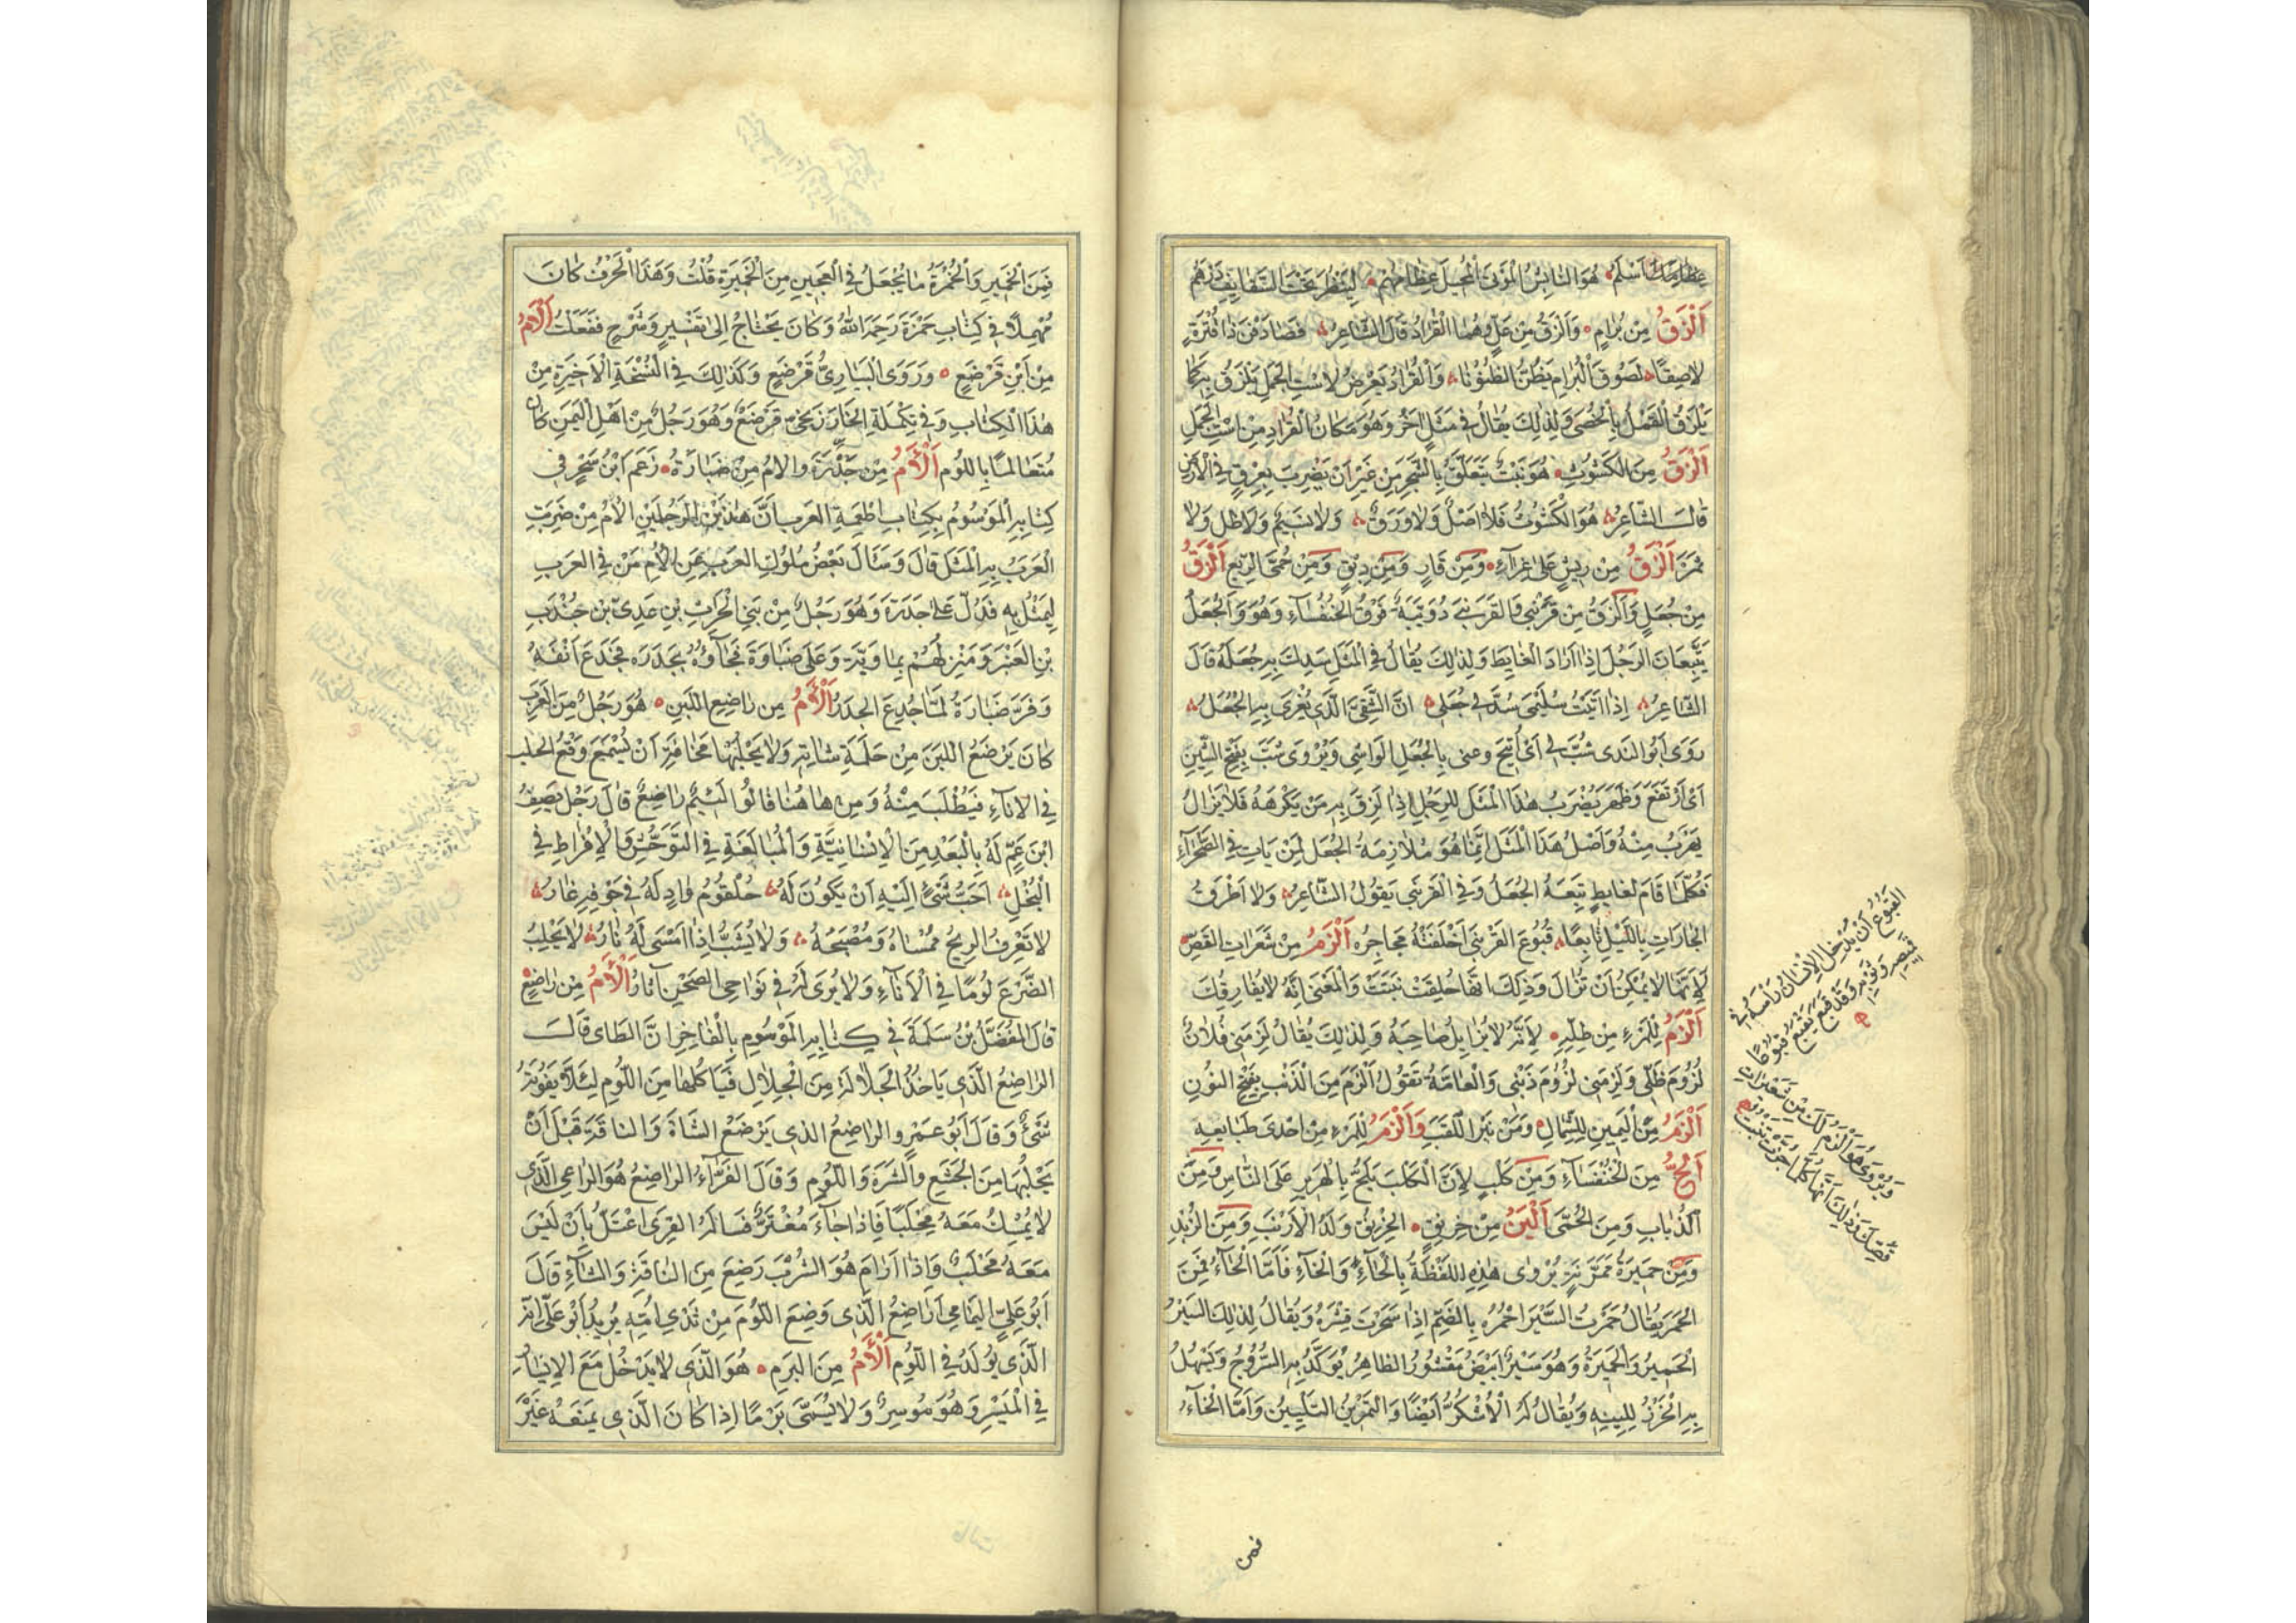 عظامك اسلم هو التائس الموتى المجل عظامهم لينظر تحت النقائف درهم
أَلْزَقُ مِن بُرَامٍ وَأَلْزَقُ مِن عَلٍّ وهُمَا القُرَادُ قَالَ الشَّاعِرُ فَصَادَفْنَ ذَا قُتْرَةٍ
لاصِقًا لُصُوقَ الْبُرَامِ يَظُنُّ الظُّنُونَا وَالْقُرَادُ يَعْرِضُ لاسْتِ الجَمَلِ يَلْزَقُ بِهِ كَمَا
يَلْزَقُ القَمْلُ بِالْخُصَى وَلِذَلِكَ يُقَالُ فِي مَثَلٍ آخَرَ وَهُوَ مَكَانُ القُرَادِ مِنِ اسْتِ الجَمَلِ
أَلْزَقُ مِنَ الكَشُوثِ هُوَ نَبْتٌ يَتَعَلَّقُ بِالشَّجَرِ مِن غَيْرِ اَنْ يَضْرِبَ بِعِرْقٍ فِي الأرْضِ
قَالَ الشَّاعِرُ هُوَ الْكَشُوثُ فَلَا أَصْلٌ وَلَا وَرَقٌ وَلَا نَسِيمٌ وَلَا ظِلٌّ وَلَا
ثَمَرُ أَلْزَقُ مِن رِيشٍ عَلَى غِرَاءٍ وَمِن قَارٍ وَمِن دِبْقٍ وَمِنْ حُمَّى الرِّبْعِ أَلْزَقُ
مِن جُعَلٍ وَأَلْزَقُ مِن قَرَنْبَى وَالقَرَنْبَى دُوَيْبَّةٌ فَوْقَ الخُنْفُسَاءِ وَهُوَ وَالجُعَلُ
يَتْبَعَانِ الرَّجُلَ إِذَا أَرَادَ الغَايِطَ وَلِذَلِكَ يُقَالُ فِي الْمَثَلِ سَدِكَ بِهِ جُعَلُهُ قَالَ
الشَّاعِرُ إِذَا أَتَيْتُ سُلَيْمَى شُدَّ لِي جُعَلٌ إِنَّ الشَّقِيَّ الَّذِي يُغْرَى بِهِ الْجُعَلُ
رَوَى أَبُو النَدَى شُبَّ لِي أَيْ أُتِيحَ وعنى بِالْجُعَلِ الوَاشِيَ وَيُرْوَى شَبَّ بِفَتْحِ الشِّينِ
أَيْ ارْتَفَعَ وَظَهَرَ يُضْرَبُ هَذَا الْمَثَلُ لِلرَّجُلِ إِذَا لَزِقَ بِهِ مَن يَكْرَهُهُ فَلَا يَزَالُ
يَهْرُبُ مِنْهُ وَاَصْلُ هَذَا الْمَثَلِ إِنَّمَا هُوَ مُلَازَمَةُ الجُعَلِ لِمَنْ بَاتَ فِي الصَّحْرَاءِ
فَكُلَّمَا قَامَ لغايطٍ تَبِعَهُ الجُعَلُ وَفِي القَرَنْبَى يَقُولُ الشَّاعِرُ وَلَا أَطْرُقُ
الجَارَاتِ بِاللَّيْلِ قَابِعًا قُبُوعَ القَرَنْبَى أَخْلَفَتْهُ مَحَاجِرُه أَلْزَمُ مِنْ شَعَرَاتِ القَصِّ
لِأَنَّهَا لَا يُمْكِنُ أَنْ تُزَالَ وَذَلِكَ انَّهَا كُلَّمَا حُلِقَتْ نَبَتَتْ وَالْمَعْنَى اَنَّهُ لَا يُفَارِقُكَ
أَلْزَمُ لِلْمَرْءِ مِن ظِلِّهِ لِأَنَّهُ لَا يُزَايِلُ صَاحِبَهُ وَلِذَلِكَ يُقَالُ لَزِمَنِي فُلَانٌ
لُزُومَ ظِلِّي وَلَزِمَنِي لُزُومَ ذَنْبِي وَالْعَامَّةُ تَقُولُ أَلْزَمُ مِنَ الذَّنَبِ بِفَتْحِ النُّونِ
أَلْزَمُ مِنَ الْيَمِينِ لِلشِّمَالِ وَمِنْ نَبَزِ اللَّقَبِ وَأَلْزَمُ لِلْمَرْءِ مِنْ إِحْدَى طَبَايِعِهِ
أَلَحُّ مِنَ الخُنْفَسَاءِ وَمِنْ كَلْبٍ لِأَنَّ الْكَلْبَ يُلِحُّ بِالهَرِيرِ عَلَى النَّاسِ وَمِنَ
الذُّبَابِ وَمِنَ الْحُمَّى أَلْيَنُ مِن خِرْنِقٍ الخِرْنِقُ وَلَدُ الْأَرْنَبِ وَمِنَ الزُّبْدِ
وَمِن حَمِيرَةٍ مُمَرَّنَةٍ يُرْوَى هَذِهِ اللَّفْظَةُ بِالْحَاءِ وَالْخَاءِ فَأَمَّا الْحَاءُ فَمِنَ
الحَمْرِ يُقَالُ حَمَرْتُ السَّيْرَ احْمُرُهُ بِالضَّمِّ إِذَا سَحَوْتَ قِشْرَهُ وَيُقَالُ لِذَلِكَ السَّيْرِ
الْحَمِيرُ وَالْحَمِيرَةُ وَهُوَ سَيْرٌ أَبْيَضُ مَقْشُورُ الظَّاهِرِ يُوَكَّدُ بِهِ السُّرُوجُ وَيَسْهُلُ
بِهِ الْخَرْزُ لِلِينِهِ وَيُقَالُ لَهُ الْأُشْكُزُّ أَيْضًا وَالتَّمْرِينُ التَّلْيِينُ وَأَمَّا الْخَاءُ
القُبُوعُ أَنْ يُدْخِلَ الإِنْسَانُ رَأْسَهُ فِي
قَمِيصِهِ وَثَوْبِهِ وَقَدْ قَبَعَ يَقْبَعُ قُبُوعًا
وَيُرْوَى هُوَ أَلْزَمُ لَكَ مِنْ شَعَرَاتِ
قَصِّكَ وَذَلِكَ أَنَّهَا كُلَّمَا جُزَّتْ نَبَتَتْ
فمن
فَمِنَ الْخَمِيرِ وَالْخُمْرَةُ مَا يُجْعَلُ فِي الْعَجِينِ مِنَ الْخَمِيرَةِ قُلْتُ وَهَذَا الْحَرْفُ كَانَ
مُهْمَلًا فِي كِتَابِ حَمْزَةَ رَحِمَهُ اللهُ وَكَانَ يَحْتَاجُ إِلَى تَفْسِيرٍ وَشَرْحٍ فَفَعَلْتُ أَلْأَمُ
مِنِ ابْنِ قَرْضَعٍ وَرَوَى الْبَيَارِيُّ قَرْضَعٍ وَكَذَلِكَ فِي النُّسْخَةِ الْأَخِيرَةِ مِنْ
هَذَا الْكِتَابِ وَفِي تَكْمِلَةِ الخَارْزَنْجِيّ قَرْضَعٌ وَهُوَ رَجُلٌ مِنْ أَهْلِ الْيَمَنِ كَانَ
مُتَعَالَمًا بِاللُّومِ أَلْأَمُ مِنْ جَدْرَةَ والامُ مِنْ ضَبَارَةَ زَعَمَ ابْنُ بَحْرٍ فِي
كِتَابِهِ الْمَوْسُومِ بِكِتَابِ اطْعِمَةِ العَرَبِ أَنَّ هَذَيْنِ الرَّجُلَيْنِ الْأَمُ مِنْ ضَرَبَتِ
الْعَرَبُ بِهِ الْمَثَلَ قَالَ وَسَأَلَ بَعْضُ مُلُوكِ العَرَبِ عَنْ الْأَمِ مَنْ فِي العَرَبِ
لِيُمَثِّلَ بِهِ فَدُلَّ عَلَى جَدْرَةَ وَهُوَ رَجُلٌ مِنْ بَنِي الْحَرِثِ بْنِ عَدِيِّ بْنِ جُنْدَبِ
بْنِ العَنْبَرِ وَمَنْزِلُهُمْ بِمَاوِيَّةَ وَعَلَى ضَبَارَةَ فَجَاؤُهُ بِجَدْرَه فَجَدَعَ اَنْفَهُ
وَفَرَّ ضَبَارَةُ لَمَّا جُدِعَ الجَدْرُ أَلْأَمُ مِن رَاضِعِ اللَّبَنِ هُوَ رَجُلٌ مِنَ الْعَرَبِ
كَانَ يَرْضَعُ اللَّبَنَ مِنْ حَلَمَةِ شَاتِهِ وَلَا يَحْلُبُهَا مَخَافَةِ أَنْ يُسْمَعَ وَقْعُ الحلب
فِي الْاِنَاءِ فَيُطْلَبَ مِنْهُ وَمِن هَا هُنَا قَالُوا لَئِيمٌ رَاضِعٌ قَالَ رَجُلٌ يَصِفُ
ابْنَ عَمٍّ لَهُ بِالْبُعْدِ مِنَ الْإِنْسَانِيَّةِ وَالْمُبَالَغَةِ فِي التَّوَحُّشِ وَالْإِفْرَاطِ فِي
الْبُخْلِ اَحَبُّ شَيْءٍ إِلَيْهِ أَنْ يَكُونَ لَهُ حُلْقُومُ وَادٍ لَهُ فِي جَوْفِهِ غَارُ
لَا تَعْرِفُ الرِّيحُ مُمْسَاهُ وَمُصْبَحُهُ وَلَا يُشَبُّ إِذَا أَمْسَى لَهُ نَارُ لَا يَحْلُبُ
الضَّرْعَ لُومًا فِي الْاِنَاءِ وَلَا يُرَى لَهُ فِي نَوَاحِي الصَّحْنِ آثَارُ أَلْأَمُ مِن رَاضِعٍ
قَالَ المُفَضَّلُ بْنُ سَلَمَةَ فِي كِتَابِهِ الْمَوْسُومِ بِالْفَاخِرِ إِنَّ الطَّائِ قَالَ
الرَّاضِعُ الَّذِي يَاخُذُ الْخِلَالَةَ مِنَ الْخِلَالِ فَيَاكُلُهَا مِنَ اللُّومِ لِئَلَّا يَفُوتَهُ
شَيْءٌ وَقَالَ أَبُو عَمْرٍو الرَّاضِعُ الَّذِي يَرْضَعُ الشَّاةَ وَالنَّاقَةَ قَبْلَ أَنْ
يَحْلُبَهَا مِنَ الْجَشَعِ وَالشَّرَهِ وَاللُّومِ وَقَالَ الفَرَّاءُ الرَّاضِعُ هُوَ الرَّاعِي الَّذِي
لَا يُمْسِكُ مَعَهُ مِحْلَبًا فَإِذَا جَاءَ مُعْتَرٌّ فَسَالَهُ القِرَى اعْتَلَّ بِأَنْ لَيْسَ
مَعَهُ مِحْلَبٌ وَإِذَا أَرَادَ هُوَ الشُّرْبَ رَضِعَ مِنَ النَّاقَةِ وَالشَّاءِ قَالَ
أَبُو عَلِيٍّ اليَمَامِيُّ الرَّاضِعُ الَّذِي رَضِعَ اللُّومَ مِنْ ثَدْيِ اُمِّهِ يُرِيدُ أَبُو عَلِيٍّ انَّهُ
الَّذِي يُولَدُ فِي اللُّومِ أَلْأَمُ مِنَ البَرَمِ هُوَ الَّذِي لَا يَدْخُلُ مَعَ الْاِيسَارِ
فِي الْمَيْسِرِ وَهُوَ مُوسِرٌ وَلَا يُسَمَّى بَرَمًا إِذَا كَانَ الَّذِي يَمْنَعُهُ غَيْرُ